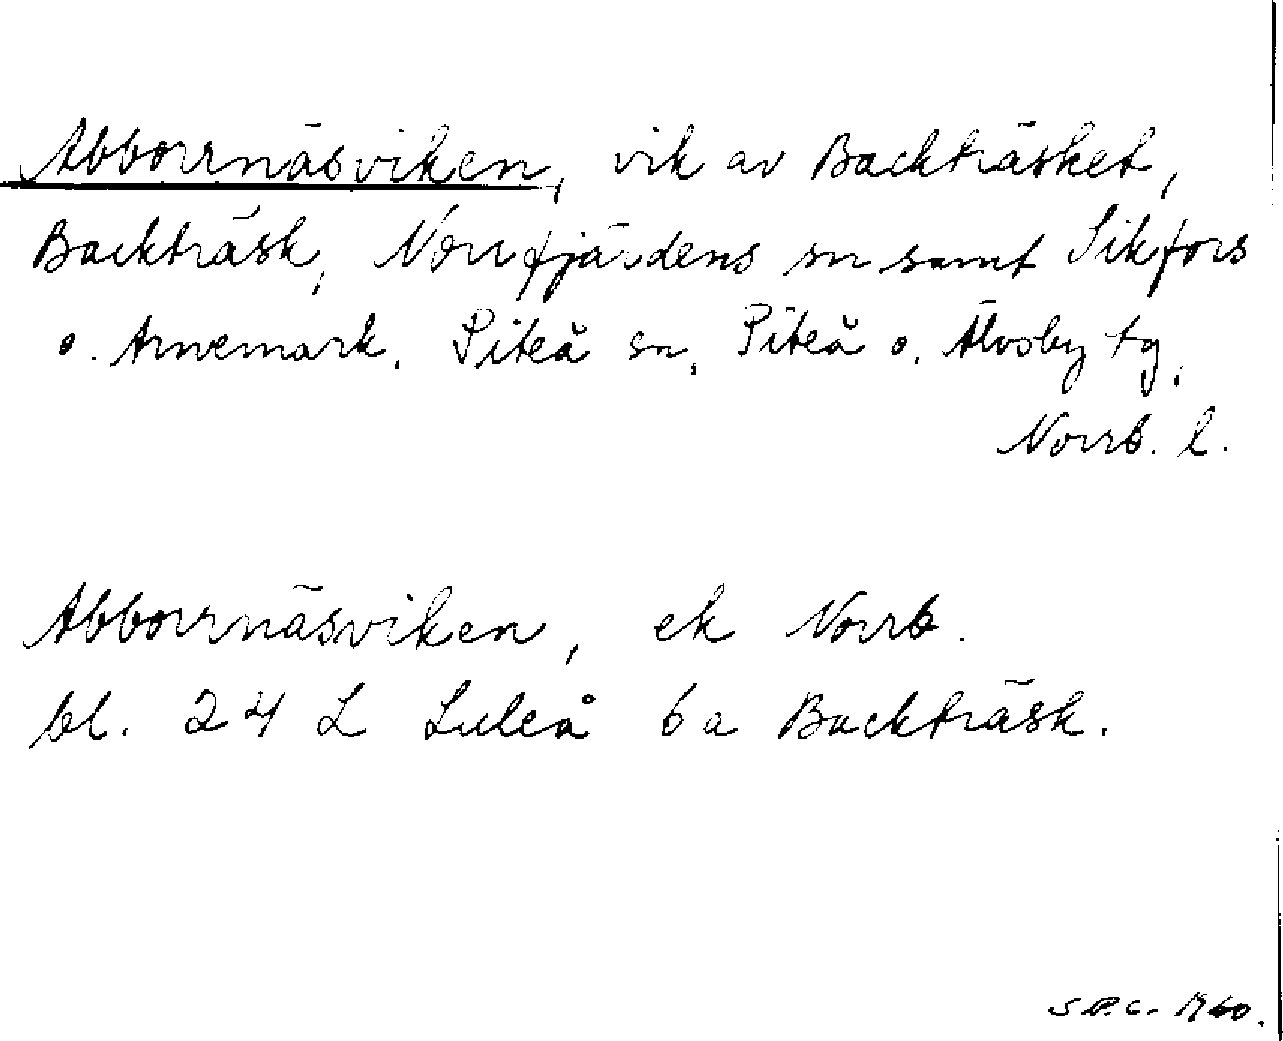 Abborrnäsviken, vik av Backträsket,
Backträsk, Norrfjärdens sn samt Sikfors
o. Arnemark, Piteå sn, Piteå o. Älvsby tg,
Norrb. l.
Abborrnäsviken, ek Norrb.
bl. 24 L Luleå 6a Backträsk.
S.P.C. 1960.